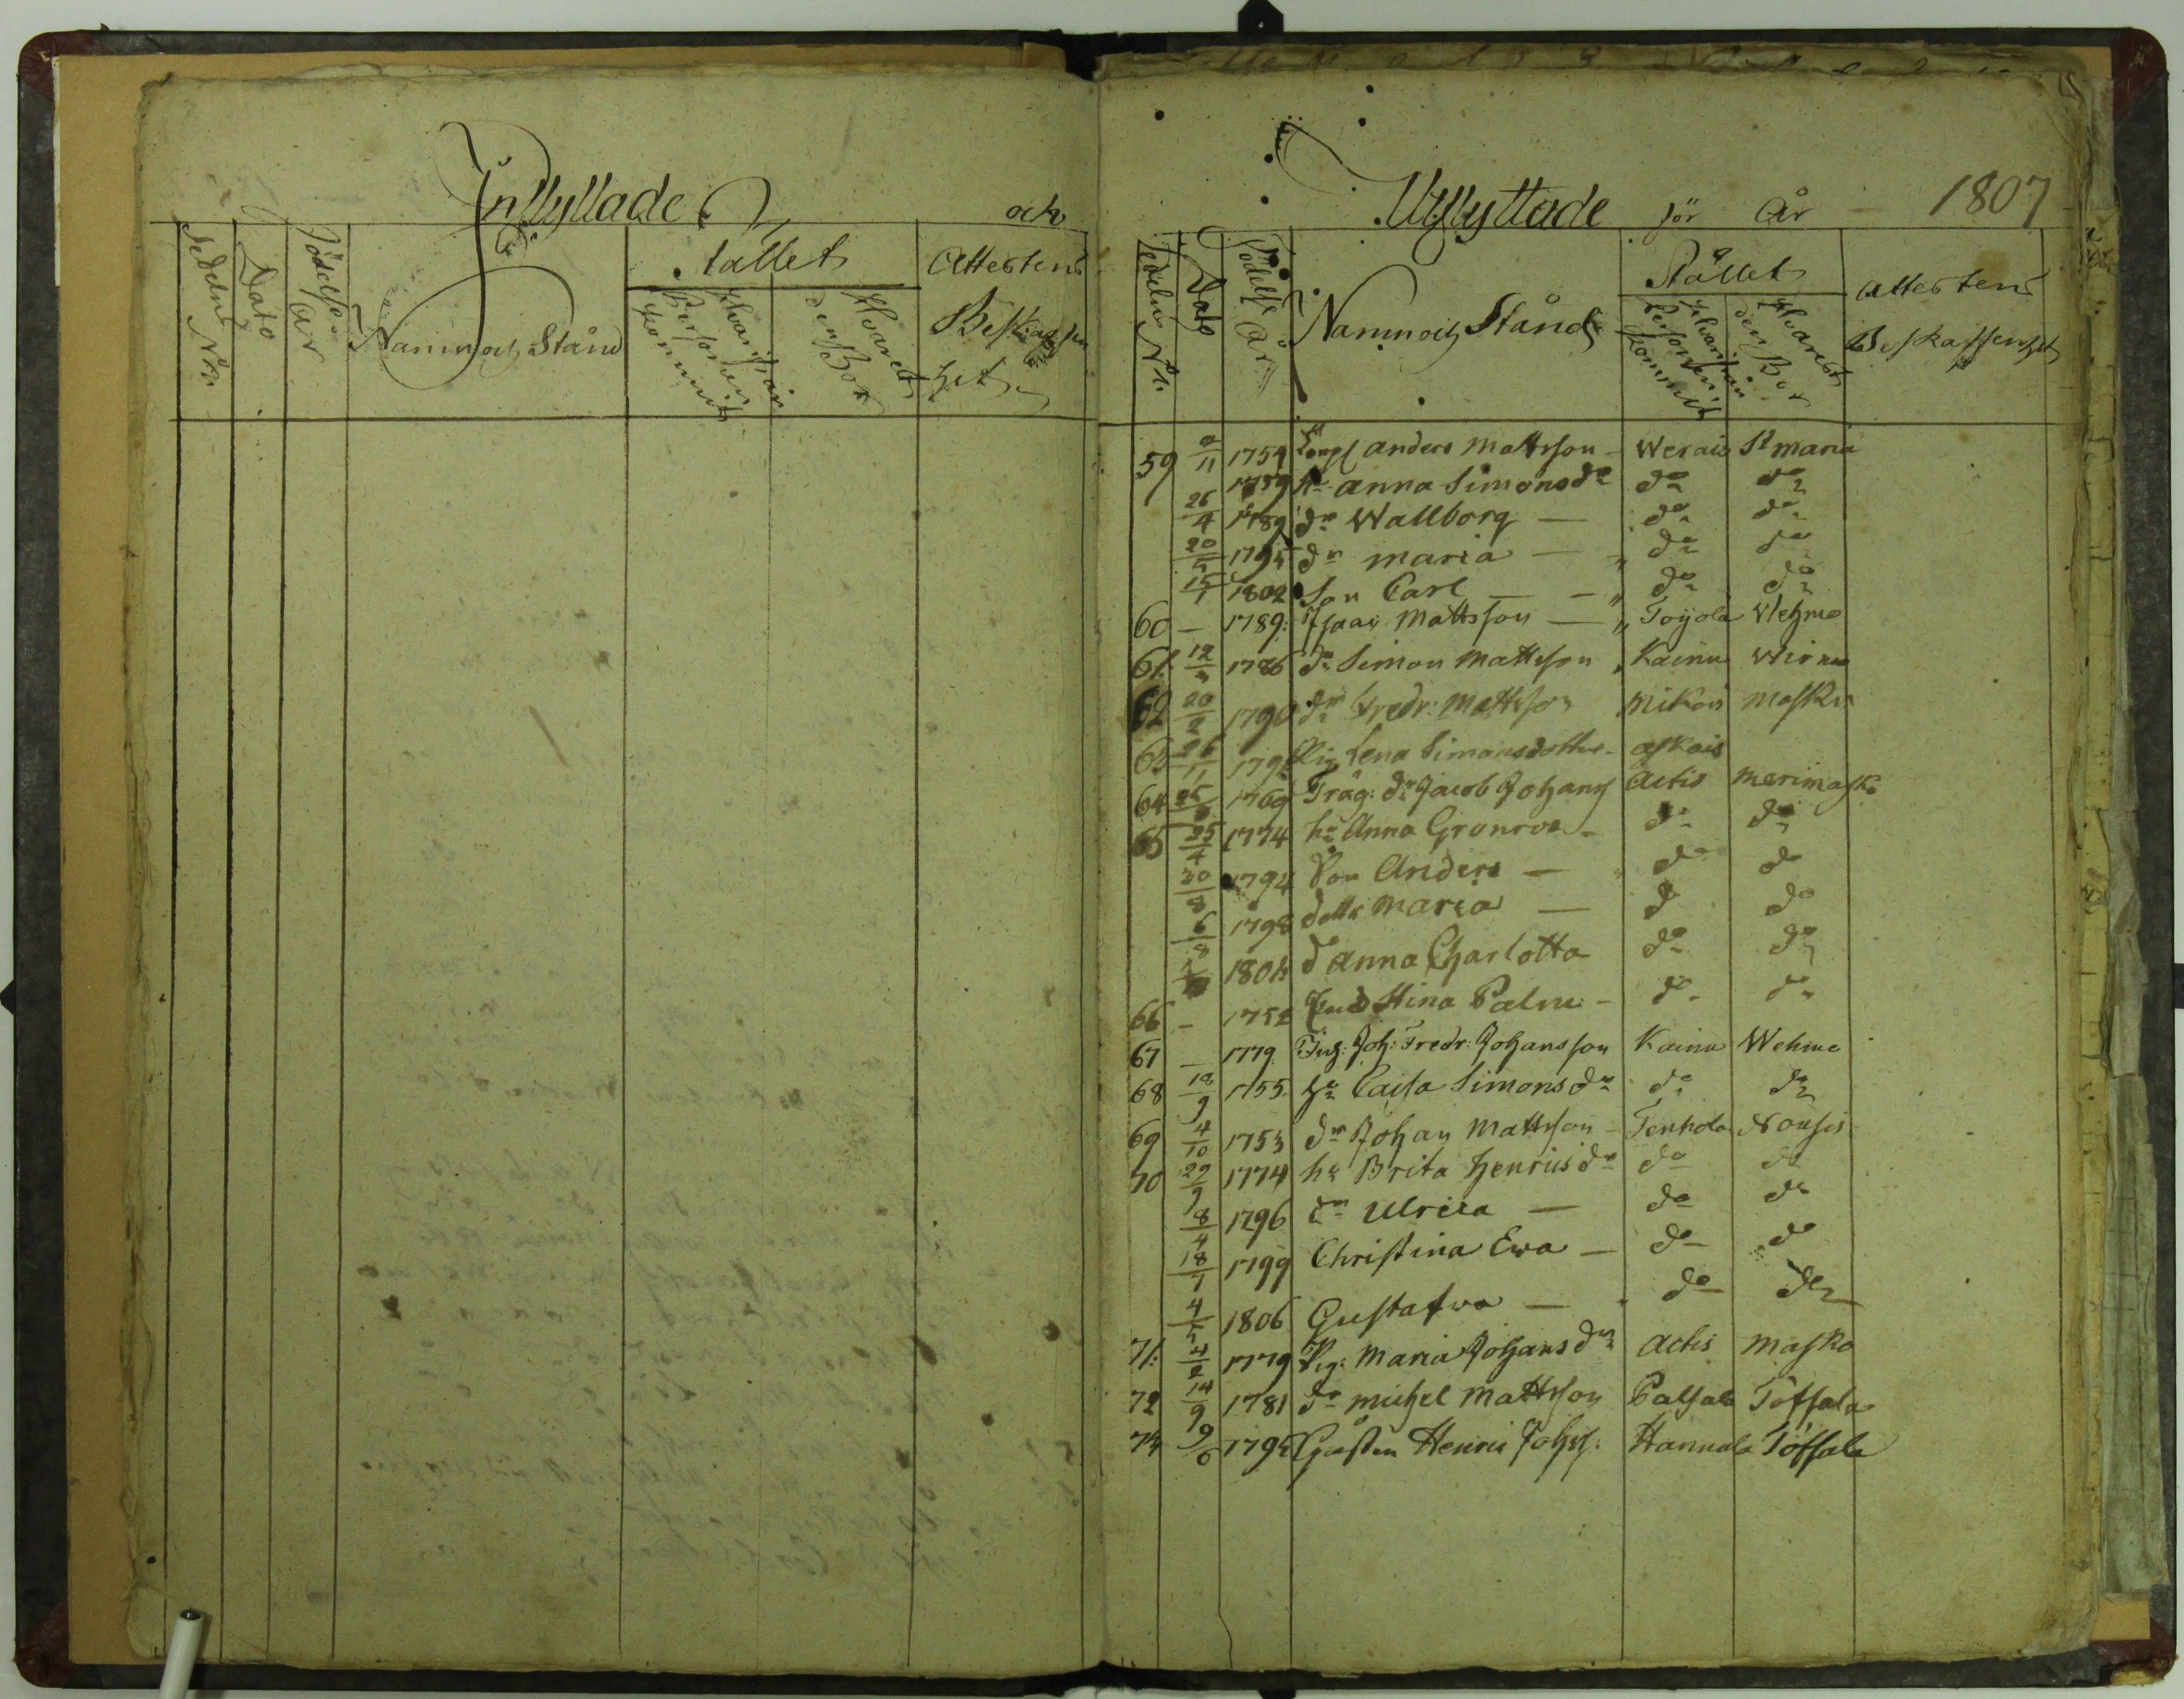 Inflyttade och
Sedelns No
Dato
Födelse År
Namn och Stånd
Stället
Hvarifrån Personen kommit
Hvarest den Bor
Attestens Beskaffenhet
Utflyttade för År 1807
Sedelns No
Dato
Födelse År
Namn och Stånd
Stället
Hvarifrån Personen kommit
Hvarest den Bor
Attestens Beskaffenhet
59 11 1759 Anders Mattsson Werais St Maria
1759 hu Anna Simonsdr do do
26/4 1789 dr Wallborg — do do
20/5 1795 dr Maria — do do
15/1 1802 Son Carl — do do
60 — 1789. Isaac Mattsson — Toyola Wehmo
61. 12 1786 dr Simon Mattsson Kainu Wirmo
62 20/2 1790 dr Fredr: Mattsson Mikois Masku
63 26/11 179 Pig Lena Simonsdotter Askais
64 25 1769 Träg: dr Jacob Johans Actis Merimasko
65 25/4 1774 hu Anna Gronroos — do do
30/8 1794 Son Anders — do do
6/8 1798 dottr Maria — d do
1804 d Anna Charlotta do do
66 — 1752 Stina Palm — do do
67 — 1779. Joh: Fredr: Johansson Kainu Wehmo
68 18/9 1755. hu Caisa Simonsdr do do
69 4/10 1753 dr Johan Mattsson — Tenhola Nousis
70 29/9 1774 hu Brita Henricsdr do do
8/4 1796 dr Ulrica — do do
18/7 1799 Christina Ewa — do do
4/5 1806 Gustafwa — do do
71: 4/2 1779 Pig: Maria Johansdr Actis Masko
72 14/9 1781 dr Michel Mattsson Palsala Töfsala
74 9/6 1795 Henric Johss: Hannula Töfsala